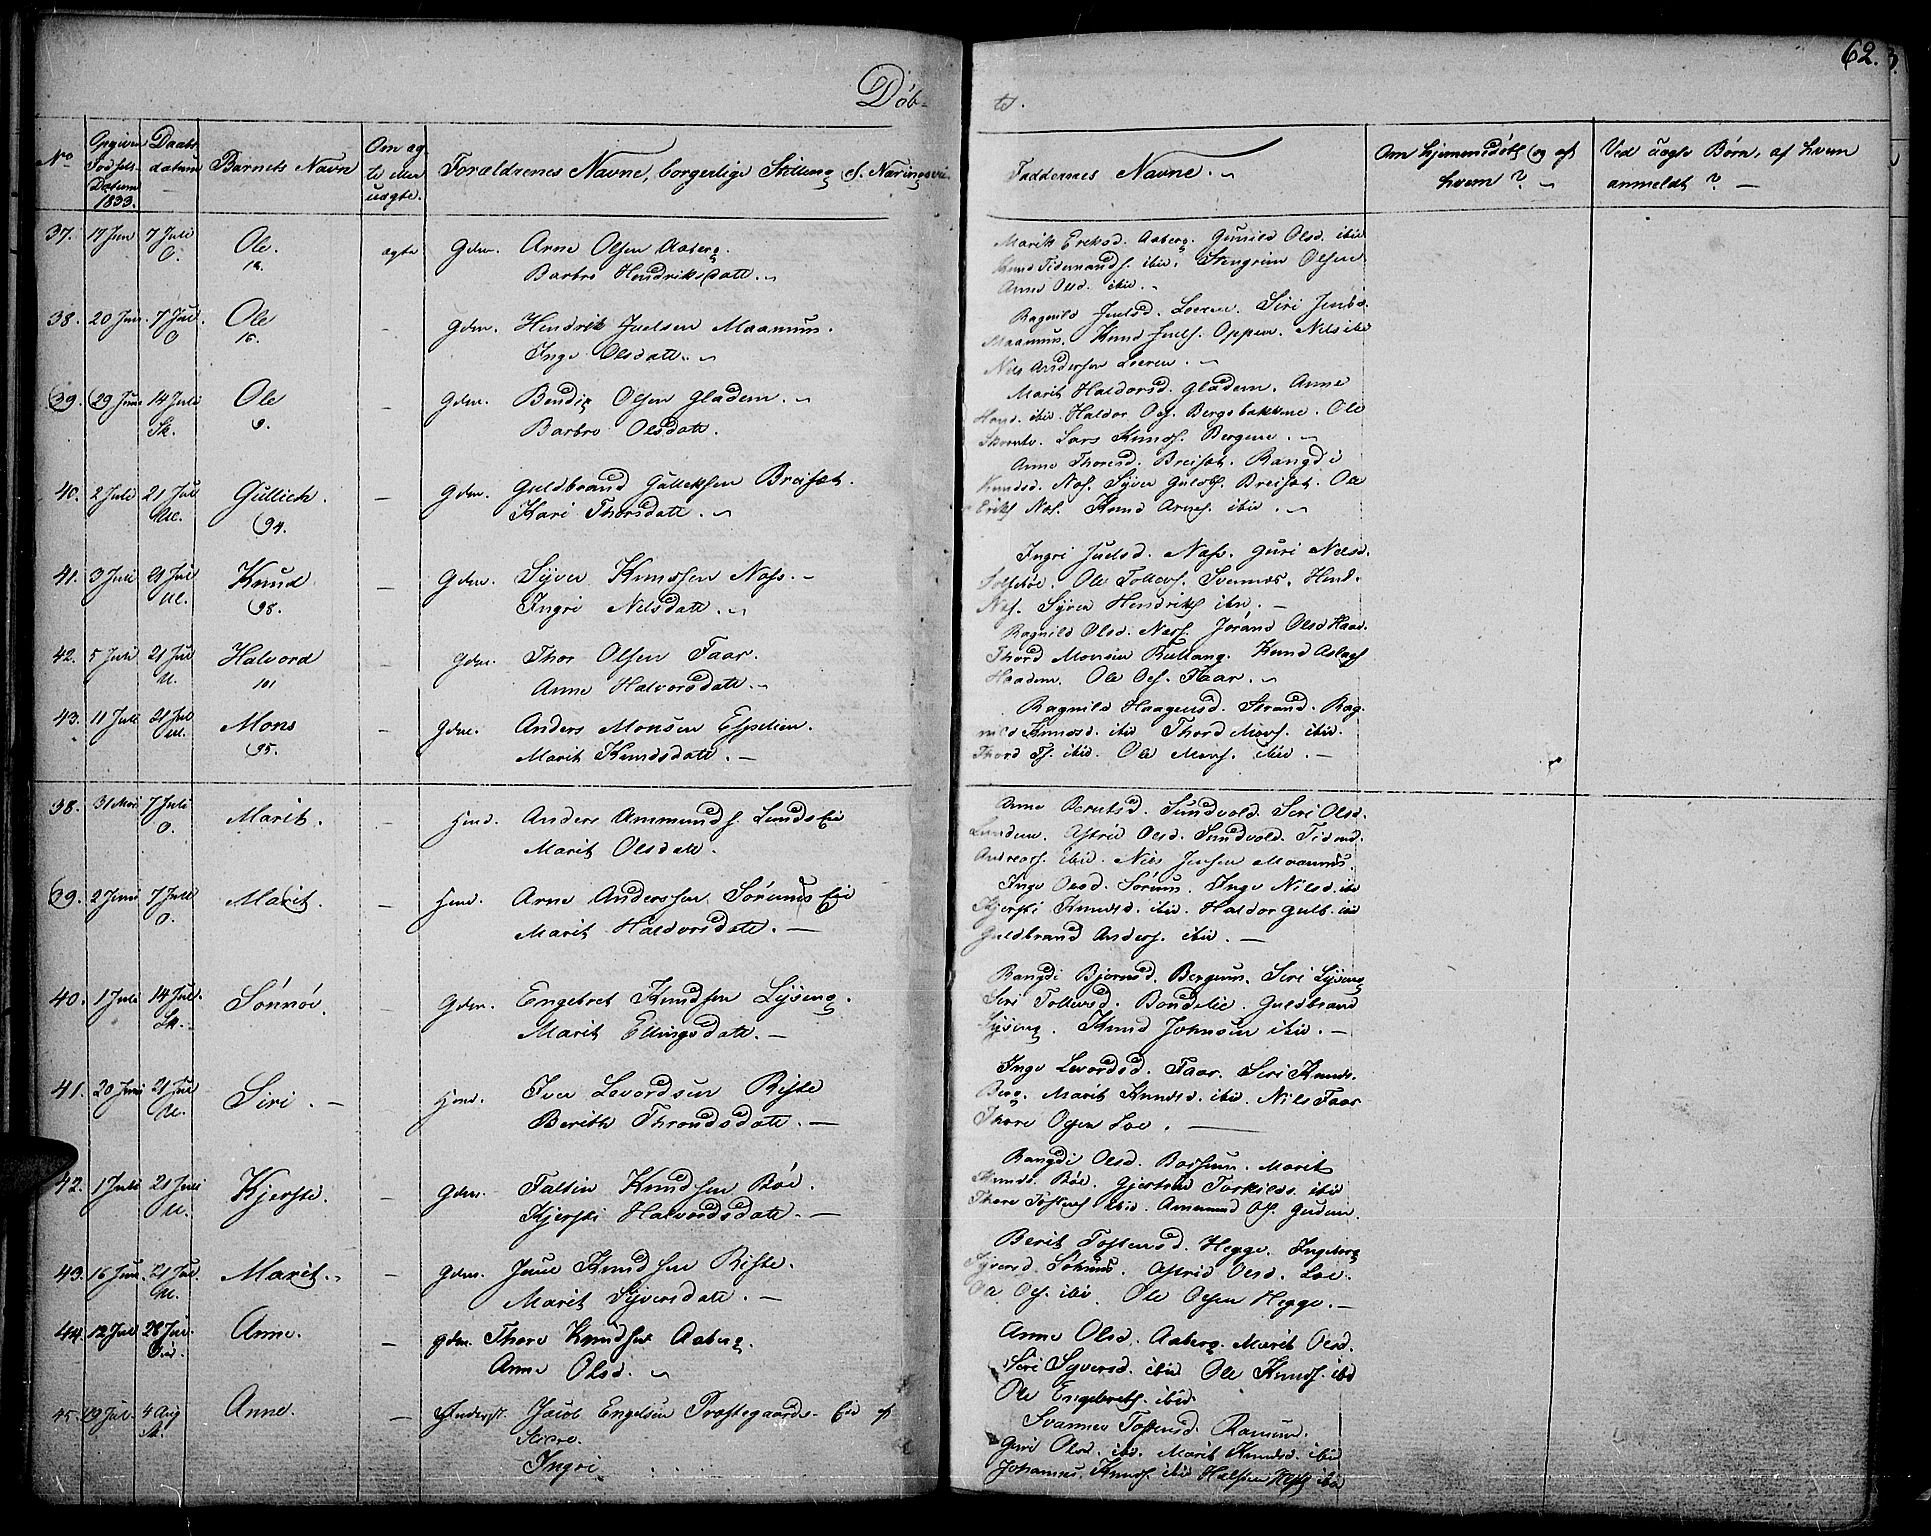 62.
Døb-
te.
No
Opgiven Fødsels Datum 1833.
Daabs datum
Barnets Navn
Om ægte eller uægte.
Forældrenes Navne, borgerlige Stilling
Faddernes Navne.
Om hjemmedøbt og af hvem?
Ved uægte Børn, af hvem anmeldt?
37. 17 Juni 7 Juli O. Ole. ægte Gdm. Arne Olsen Aaberg.
Barbro Hendriksdatt.
Marith Eriksd. Aaberg. Gunild Olsd. ibid
Knud Tidemands. ibid. Stengrim Olsen
Anne Olsd. ibid.
38. 20 Juni 7 Jul. O Ole 16. - Gdm. Hendrik Juelsen Maanum.
Inge Olsdatt.
Ragnild Juelsd. Loeren. Siri
Maanum. Knud Juels. Oppen. Nils ibid
Nils Andersen Loeren.
39. 29 Juni 14 Juli Sk. Ole 9. - Gdm. Bendix Olsen Gladem.
Barbro Olsdatt.
Marit Haldorsd. Gladem. Anne
ibid. Haldor Ols. Bergsbakkene. Ole
Lars Knuds. Bergene.
40. 2 Juli 21 Jul Ul. Gullich. 94. - Gdm. Guldbrand Gulliksen Breiset.
Kari Thorsdatt.
Anne Thoresd. Breiset. Rangdi
Knudsd. Næs. Syver Gulds. Breiset. Ole
Eriks. Næs. Knud Arnes. ibid.
41. 3 Juli 21 Jul Ul. Knud 98. - Gdm. Syver Knudsen Næss.
Ingri Nilsdatt.
Ingri Juelsd. Næss. Guri Nilsd.
Ole Tollevs. Svennes. Hend.
Næs. Syver Hendriks. ibid.
42. 5 Juli 21 Jul U. Halvord 101 Gdm. Thor Olsen Faar.
Anne Halvorsdatt.
Ragnild Olsd. Næss. Jørand Olsd Haad.
Thord Monsen Rustang. Knud Aslags
Haadem. Ole Ols. Faar.
43. 11 Juli 21 Jul Ul. Mons 95. - Gdm. Anders Monsen Espelien.
Marit Knudsdatt.
Ragnild Haagensd. Strand. Rag-
nild Knudsd. ibid Thord Mons. ibid.
Thord Ts. ibid. Ole Mons. ibid.
38. 31 Mai 7 Juli O. Marit. - Hmd. Anders Ammunds. Lunds Eie
Marit Olsdatt.
Anne Berntsd. Sundvold. Siri Olsd.
Lundem. Astrid Olsd. Sundvold. Tidemd.
Andreas. ibid. Nils Jensen Maanum
39. 2 Juni 7 Juli O. Marit. - Hmd. Arne Andersen Sørums Eie
Marit Haldorsdatt.
Inge Olsd. Sørum. Inge Nilsd. ibid
Kjersti Knudsd. ibid. Haldor Gulb. ibid
Guldbrand Anders. ibid.
40. 1 Juli 14 Jul. Sk. Sønnøv. Gdm. Engebret Knudsen Lysing.
Marit Ellingsdatt.
Rangdi Bjørnsd. Bergum. Siri Lysing
Siri Tollevsd. Bondelie. Guldbrand
Lysing. Knud Johnsen ibid.
41. 20 Juni 21 Jul Ul. Siri. - Hmd. Iver Levordsen Riste
Berith Throndsdatt.
Inge Levordsd. Faar. Siri Knuds.
Berg. Marit Knudsd. ibid. Nils Faar
Thore Olsen Loe.
42. 1 Juli 21 Juli Ul. Kjersti. - Gdm. Fallin Knudsen Bøe.
Kjersti Halvordsdatt.
Rangdi Olsd. Marit
Knuds. Bøe. Gjertrud Torkilds. ibid
Thore Tostens. ibid. Ammund Ols.
43. 16 Juni 21 Jul. Ul. Marit. - Gdm. Juul Knudsen Riste.
Marit Syversdatt.
Berit Tostensd. Hegge. Ingeborg
Syversd. Astrid Olsd. Loe.
Ole Ols. ibid Ole Olsen Hegge.
44. 12 Jul 28 Jul. Anne. - Gdm. Thore Knudsen Aaberg.
Anne Olsd.
Anne Olsd. Aaberg. Marit Olsd.
Siri Syversd. ibid Ole Knuds. ibd
Ole Engebrets. ibid.
45. 19 Jul. 4 Aug Anne. - Jacob Engelsen Præstegaards- Eie af
Ingri
Tostensd. Ranum.
Guri Olsd. ibid. Marit Knudsd. ibid
Johannes Knuds. ibid Halsten ibid